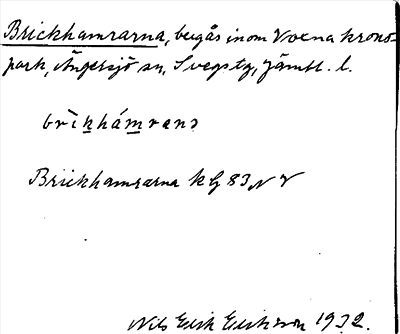 Brickhamrarna, bergås inom Voxna krono-
park, Ängersjö sn, Svegs tg, Jämtl. l.
brìkhámrenə
Brickhamrarna kg 83 NV
Nils Erik Eriksson 1932.